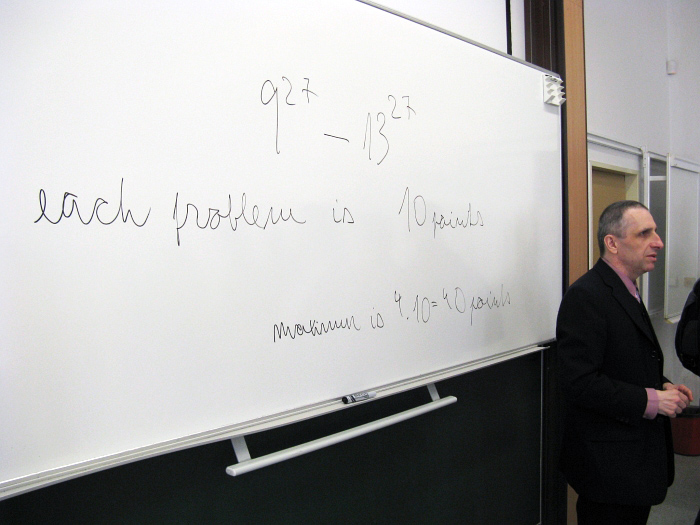 9²⁷ – 13²⁷
each problem is 10 points
maximum is 4.10=40 points